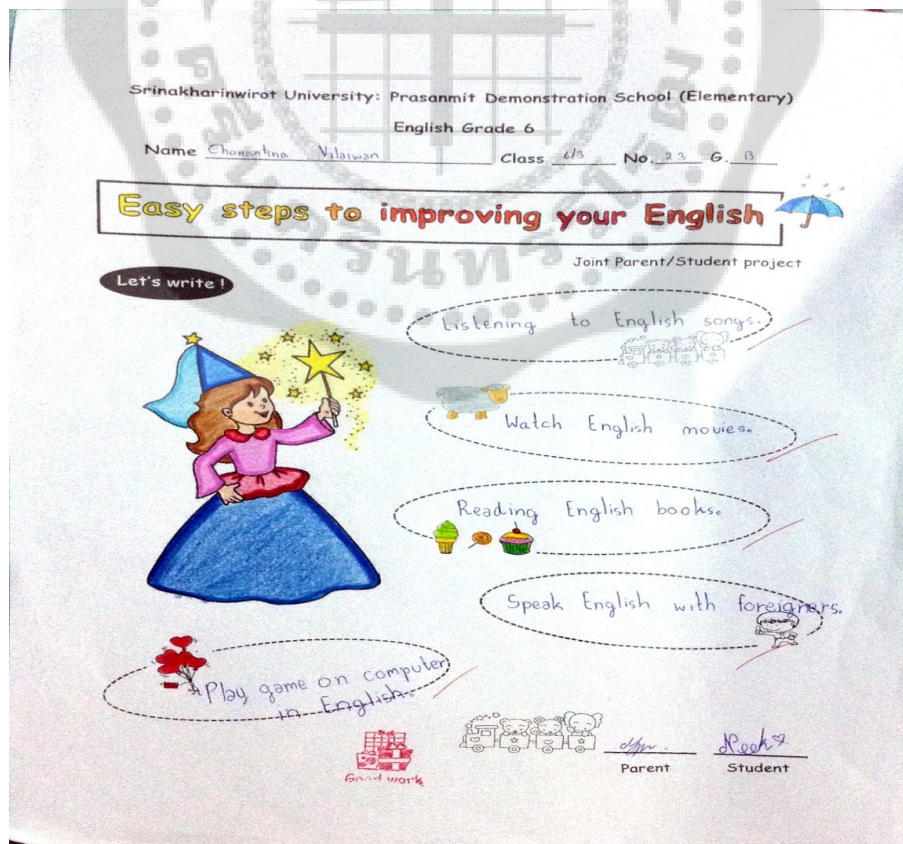 Srinakharinwirot University: Prasanmit Demonstration School (Elementary)
English Grade 6
Name Chanantina Vilaiwan Class 6/3 No. 23 G. B
Easy steps to improving your English
Joint Parent/Student project
Let's write !
Listening to English songs.
Watch English movies.
Reading English books.
Speak English with foreigners.
Play game on computer
in English.
Good work
Parent Student